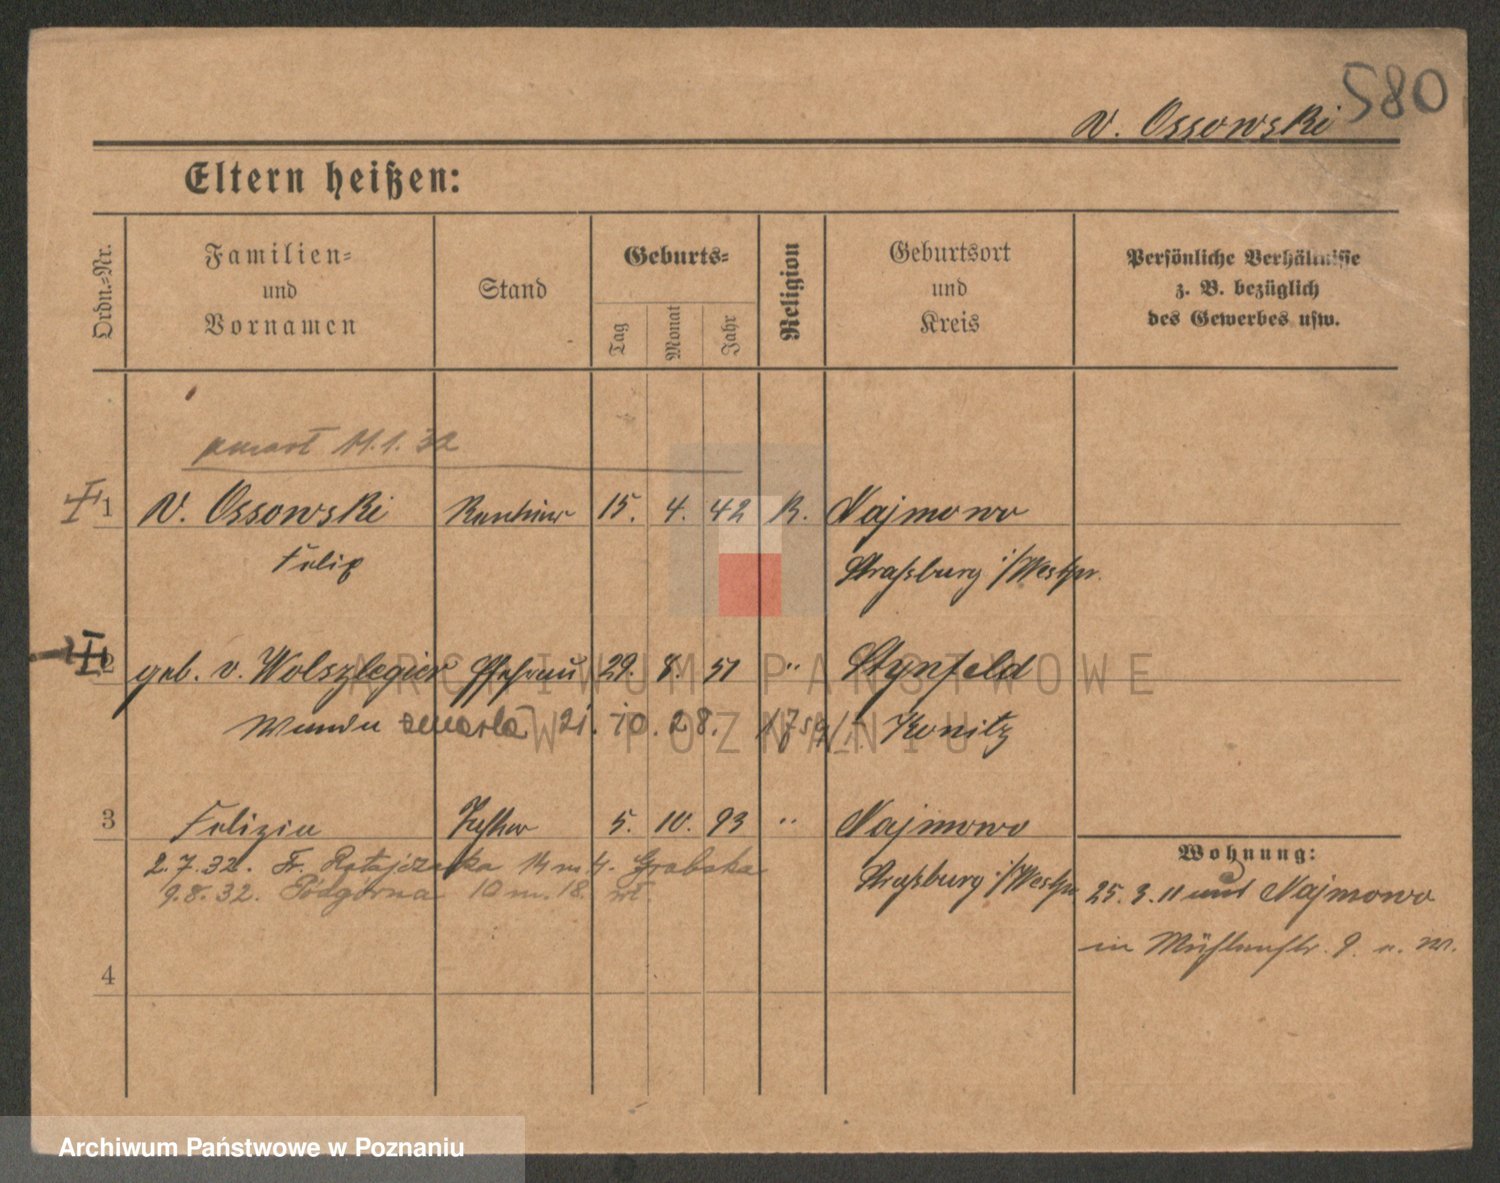 580
v. Ossowski
Eltern heißen:
Ordn.=Nr.
Familien= und Vornamen
Stand
Geburts=
Tag Monat Jahr
Religion
Geburtsort und Kreis
Persönliche Verhältnisse z. B. bezüglich des Gewerbes usw.
11.1.32
1 v. Ossowski Rentier 15. 4. 42 K. Najmowo
Felix Straßburg i/Westpr.
2 geb. v. Wolszlegier Ehefrau 29. 8. 51 " Stynfeld
Wanda zmarła 21. 10. 28. Konitz
3 Felizia Tochter 5. 10. 93 " Najmowo
Wohnung:
2.7.32. Fr. Ratajczaka 14 m 4. Grabska
Straßburg i/Westpr
25. 3. 11 aus Najmowo
9.8.32. Podgórna 10 m. 18.
in Mühlenstr. 9
4
ARCHIWUM PAŃSTWOWE
W POZNANIU
Archiwum Państwowe w Poznaniu